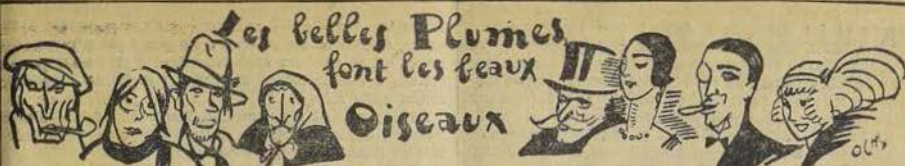 Les belles Plumes
font les beaux
Oiseaux